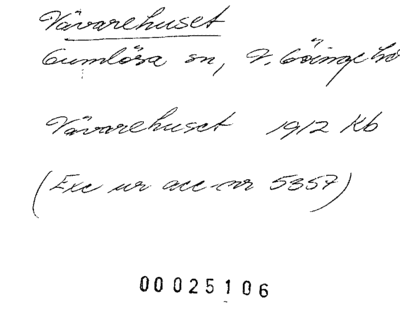 Vävarehuset
Gumlösa sn, V. Göinge hd
Vävarehuset 1912 Kb
(Exc ur acc-nr 5357)
00025106